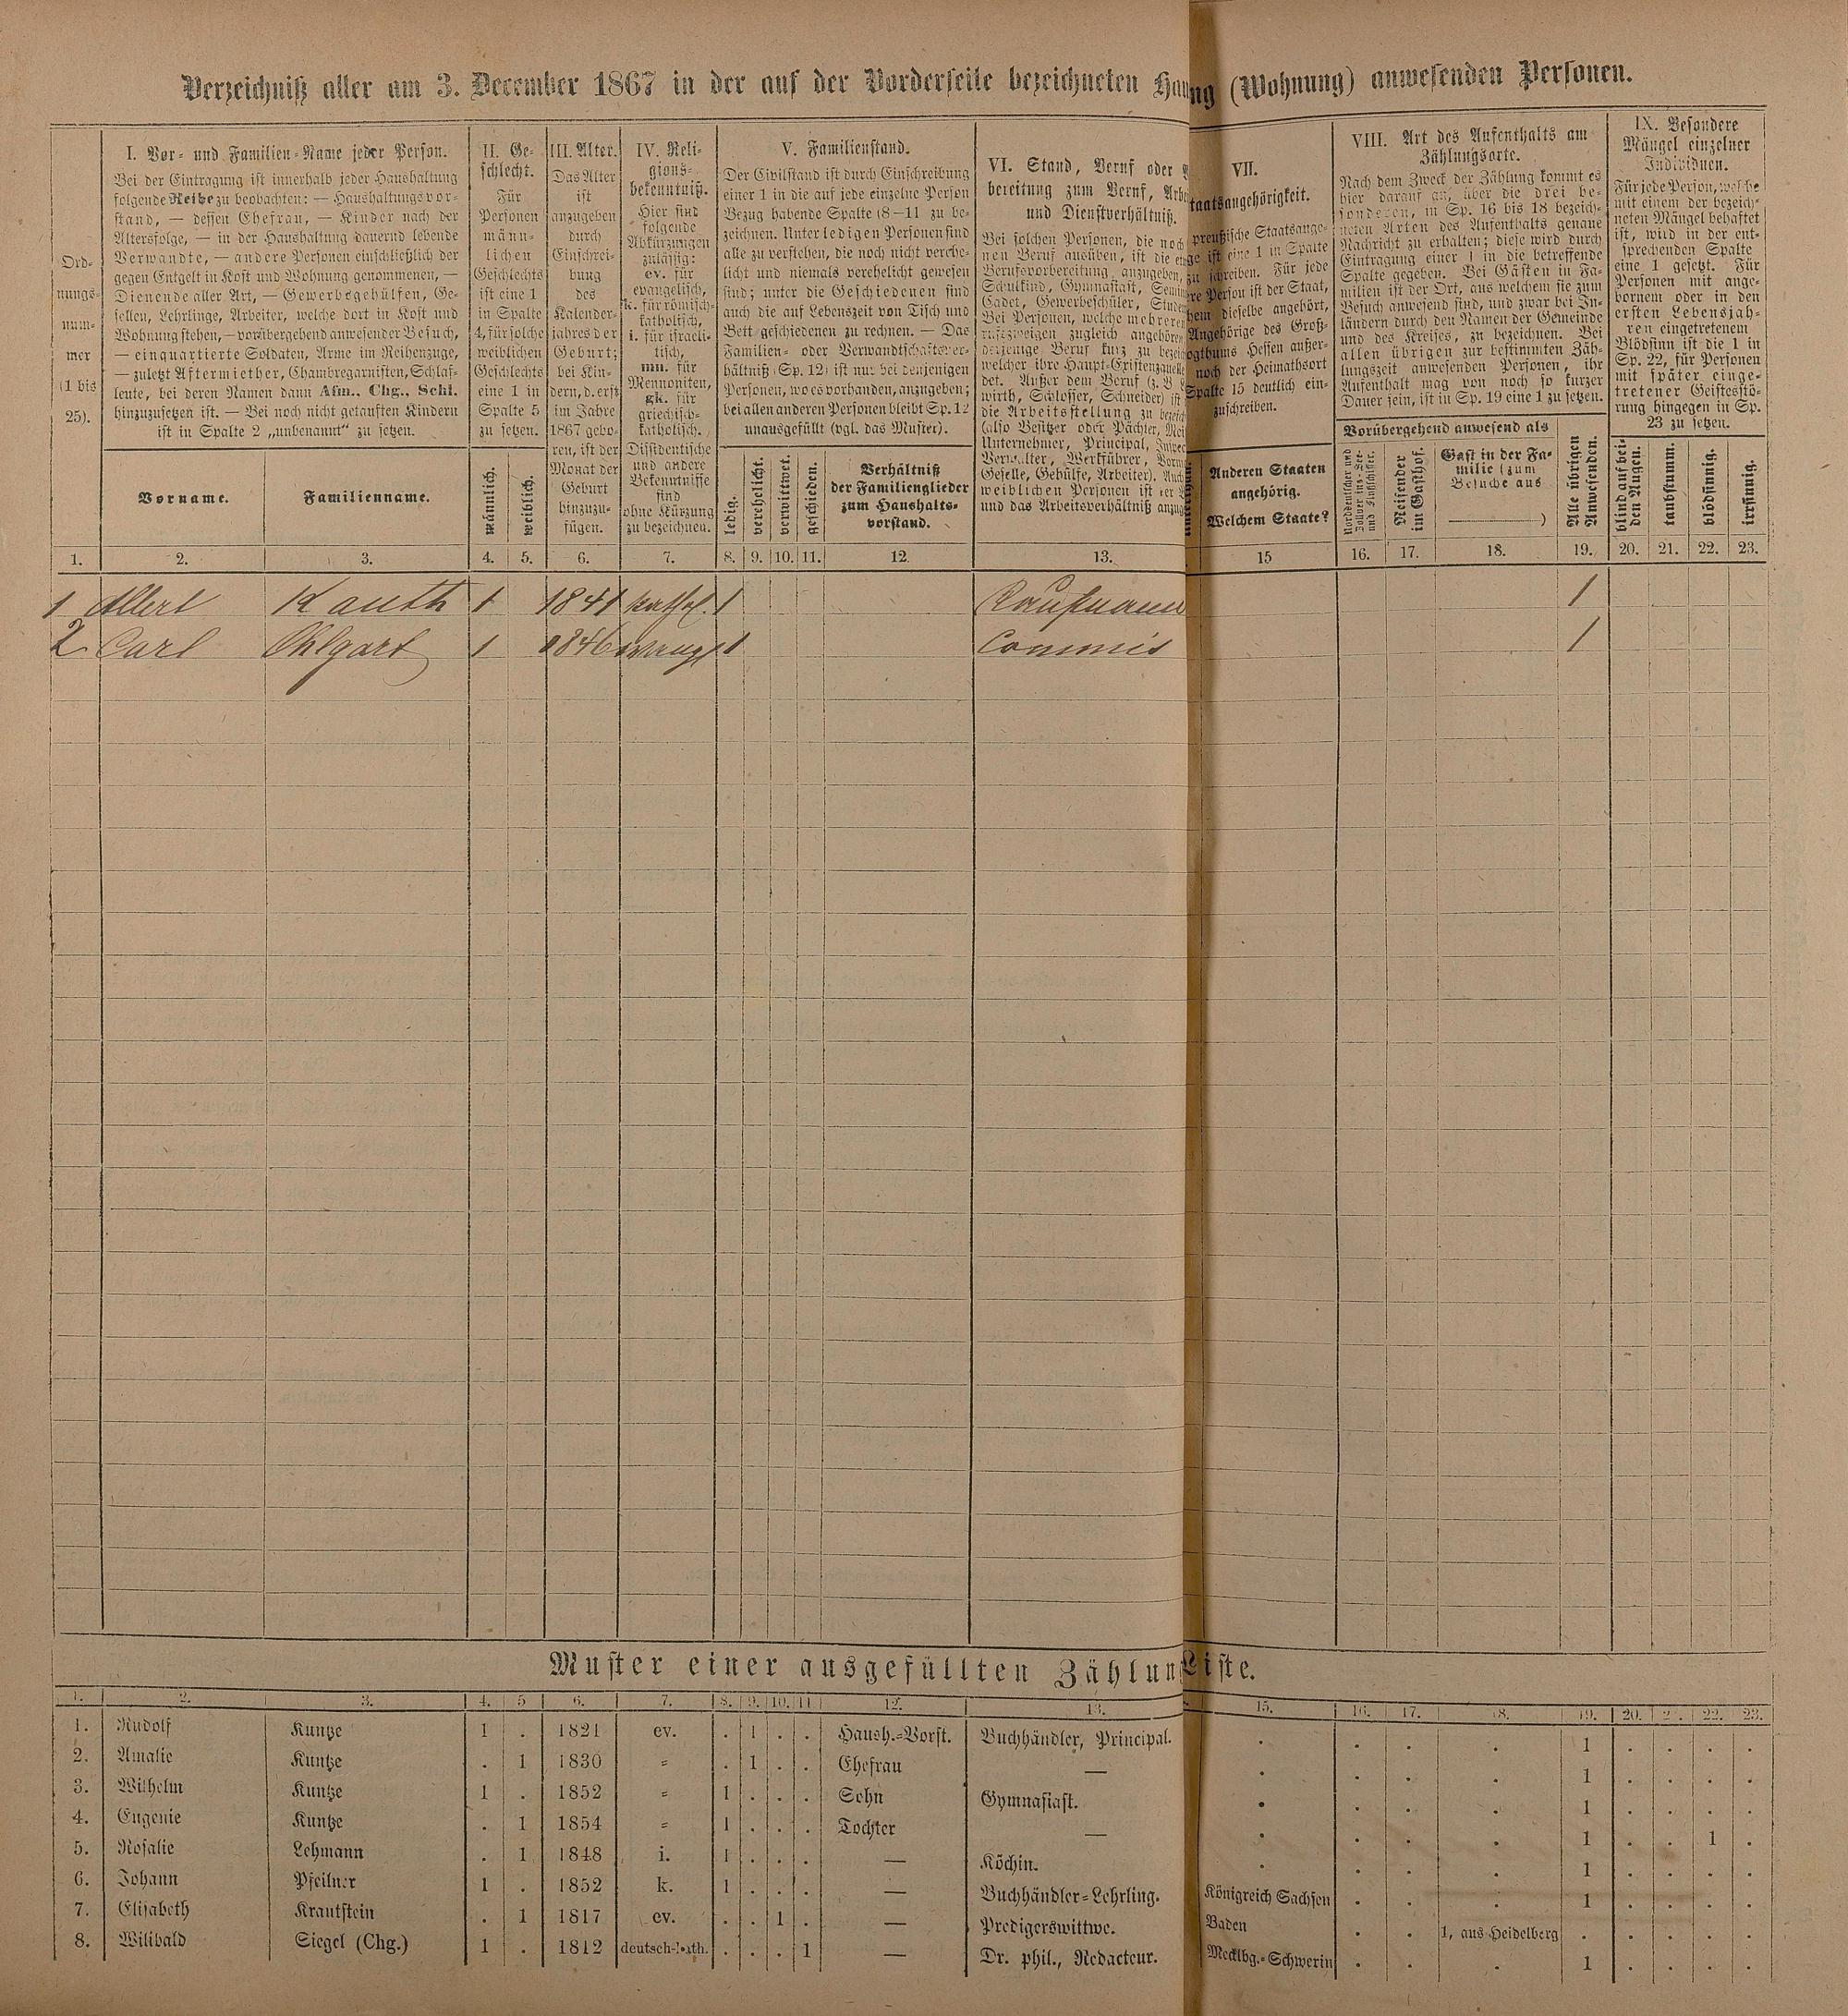 Verzeichniß aller am 3. December 1867 in der auf der Vorderseite bezeichneten Hau ng (Wohnung) anwesenden Personen.
Ord-
nungs-
num-
mer
(1 bis
25).
I. Vor- und Familien-Name jeder Person.
Bei der Eintragung ist innerhalb jeder Haushaltung
folgende Reihe zu beobachten: — Haushaltungsvor-
stand, — dessen Ehefrau, — Kinder nach der
Altersfolge, — in der Haushaltung dauernd lebende
Verwandte, — andere Personen einschließlich der
gegen Entgelt in Kost und Wohnung genommenen, —
Dienende aller Art, — Gewerbsgehülfen, Ge-
sellen, Lehrlinge, Arbeiter, welche dort in Kost und
Wohnung stehen, — vorübergehend anwesender Besuch,
— einquartierte Soldaten, Arme im Reihenzuge,
— zuletzt Aftermiether, Chambregarnisten, Schlaf-
leute, bei deren Namen dann Afm., Chg., Schl.
hinzuzusetzen ist. — Bei noch nicht getauften Kindern
ist in Spalte 2 „unbenannt“ zu setzen.
Vorname.
Familienname.
II. Ge-
schlecht.
Für
Personen
männ-
lichen
Geschlechts
ist eine 1
in Spalte
4, für solche
weiblichen
Geschlechts
eine 1 in
Spalte 5
zu setzen.
männlich.
weiblich.
III. Alter.
Das Alter
ist
anzugeben
durch
Einschrei-
bung
des
Kalender-
jahres der
Geburt;
bei Kin-
dern, d. erst
im Jahre
1867 gebo-
ren, ist der
Monat der
Geburt
hinzuzu-
fügen.
IV. Reli-
gions-
bekenntniß.
Hier sind
folgende
Abkürzungen
zulässig:
ev. für
evangelisch,
k. für römisch-
katholisch,
i. für israeli-
tisch,
mn. für
Mennoniten,
gk. für
griechisch-
katholisch.
Dissidentische
und andere
Bekenntnisse
sind
ohne Kürzung
zu bezeichnen.
V. Familienstand.
Der Civilstand ist durch Einschreibung
einer 1 in die auf jede einzelne Person
Bezug habende Spalte (8—11 zu be-
zeichnen. Unter ledigen Personen sind
alle zu verstehen, die noch nicht verehe-
licht und niemals verehelicht gewesen
sind; unter die Geschiedenen sind
auch die auf Lebenszeit von Tisch und
Bett geschiedenen zu rechnen. — Das
Familien- oder Verwandtschaftsver-
hältniß (Sp. 12) ist nur bei denjenigen
Personen, wo es vorhanden, anzugeben;
bei allen anderen Personen bleibt Sp. 12
unausgefüllt (vgl. das Muster).
ledig.
verehelicht.
verwittwet.
geschieden.
Verhältniß
der Familienglieder
zum Haushalts-
vorstand.
VI. Stand, Beruf oder
bereitung zum Beruf,
und Dienstverhältniß.
Bei solchen Personen, die noch
nen Beruf ausüben, ist die
Berufsvorbereitung anzugeben,
Schulkind, Gymnasiast,
Cadet, Gewerbeschüler,
Bei Personen, welche mehreren
zugleich angehören
derjenige Beruf kurz zu
welcher ihre Haupt-Existenzquelle
det. Außer dem Beruf
wirth, Schlosser, Schneider) ist
die Arbeitsstellung zu
(also Besitzer oder Pächter,
Unternehmer, Principal,
Verwalter, Werkführer,
Geselle, Gehülfe, Arbeiter).
weiblichen Personen ist der
und das Arbeitsverhältniß
VII.
taatsangehörigkeit.
preußische Staatsange-
ist eine 1 in Spalte
zu schreiben. Für jede
Person ist der Staat,
dieselbe angehört,
Angehörige des Groß-
ogthums Hessen außer-
noch der Heimathsort
Spalte 15 deutlich ein-
zuschreiben.
Anderen Staaten
angehörig.
Welchem Staate?
VIII. Art des Aufenthalts am
Zählungsorte.
Nach dem Zweck der Zählung kommt es
hier darauf an, über die drei be-
sonderen, in Sp. 16 bis 18 bezeich-
neten Arten des Aufenthalts genaue
Nachricht zu erhalten; diese wird durch
Eintragung einer 1 in die betreffende
Spalte gegeben. Bei Gästen in Fa-
milien ist der Ort, aus welchem sie zum
Besuch anwesend sind, und zwar bei In-
ländern durch den Namen der Gemeinde
und des Kreises, zu bezeichnen. Bei
allen übrigen zur bestimmten Zäh-
lungszeit anwesenden Personen, ihr
Aufenthalt mag von noch so kurzer
Dauer sein, ist in Sp. 19 eine 1 zu setzen.
Vorübergehend anwesend als
Norddeutscher und
Zollvereins-See-
und Flußschiffer.
Reisender
im Gasthof.
Gast in der Fa-
milie (zum
Besuche aus
)
Alle übrigen
Anwesenden.
IX. Besondere
Mängel einzelner
Individuen.
Für jede Person, welche
mit einem der bezeich-
neten Mängel behaftet
ist, wird in der ent-
sprechenden Spalte
eine 1 gesetzt. Für
Personen mit ange-
bornem oder in den
ersten Lebensjah-
ren eingetretenem
Blödsinn ist die 1 in
Sp. 22, für Personen
mit später einge-
tretener Geistesstö-
rung hingegen in Sp.
23 zu setzen.
blind auf bei-
den Augen.
taubstumm.
blödsinnig.
irrsinnig.
1. 2. 3. 4. 5. 6. 7. 8. 9. 10. 11. 12. 13. 15 16. 17. 18. 19. 20. 21. 22. 23.
1 Albert Kauth 1 1841 kathol. 1 Kaufmann 1
2 Carl Ohlgart 1 1846 evang 1 Commis 1
Muster einer ausgefüllten Zählun Liste.
1. 2. 3. 4. 5 6. 7. 8. 9. 10. 11 12. 13. 15. 16. 17. 18. 19. 20. 21. 22. 23.
1. Rudolf Kuntze 1 . 1821 ev. . 1 . . Haush.-Vorst. Buchhändler, Principal. . . . . 1 . . . .
2. Amalie Kuntze . 1 1830 " . 1 . . Ehefrau — . . . . 1 . . . .
3. Wilhelm Kuntze 1 . 1852 " 1 . . . Sohn Gymnasiast. . . . . 1 . . . .
4. Eugenie Kuntze . 1 1854 " 1 . . . Tochter — . . . . 1 . . 1 .
5. Rosalie Lehmann . 1 1848 i. 1 . . . — Köchin. . . . . 1 . . . .
6. Johann Pfeilner 1 . 1852 k. 1 . . . — Buchhändler-Lehrling. Königreich Sachsen . . . 1 . . . .
7. Elisabeth Krautstein . 1 1817 ev. . . 1 . — Predigerswittwe. Baden . . 1, aus Heidelberg . . . . .
8. Wilibald Siegel (Chg.) 1 . 1812 deutsch-kath. . . . 1 — Dr. phil., Redacteur. Mecklbg.-Schwerin . . . 1 . . . .